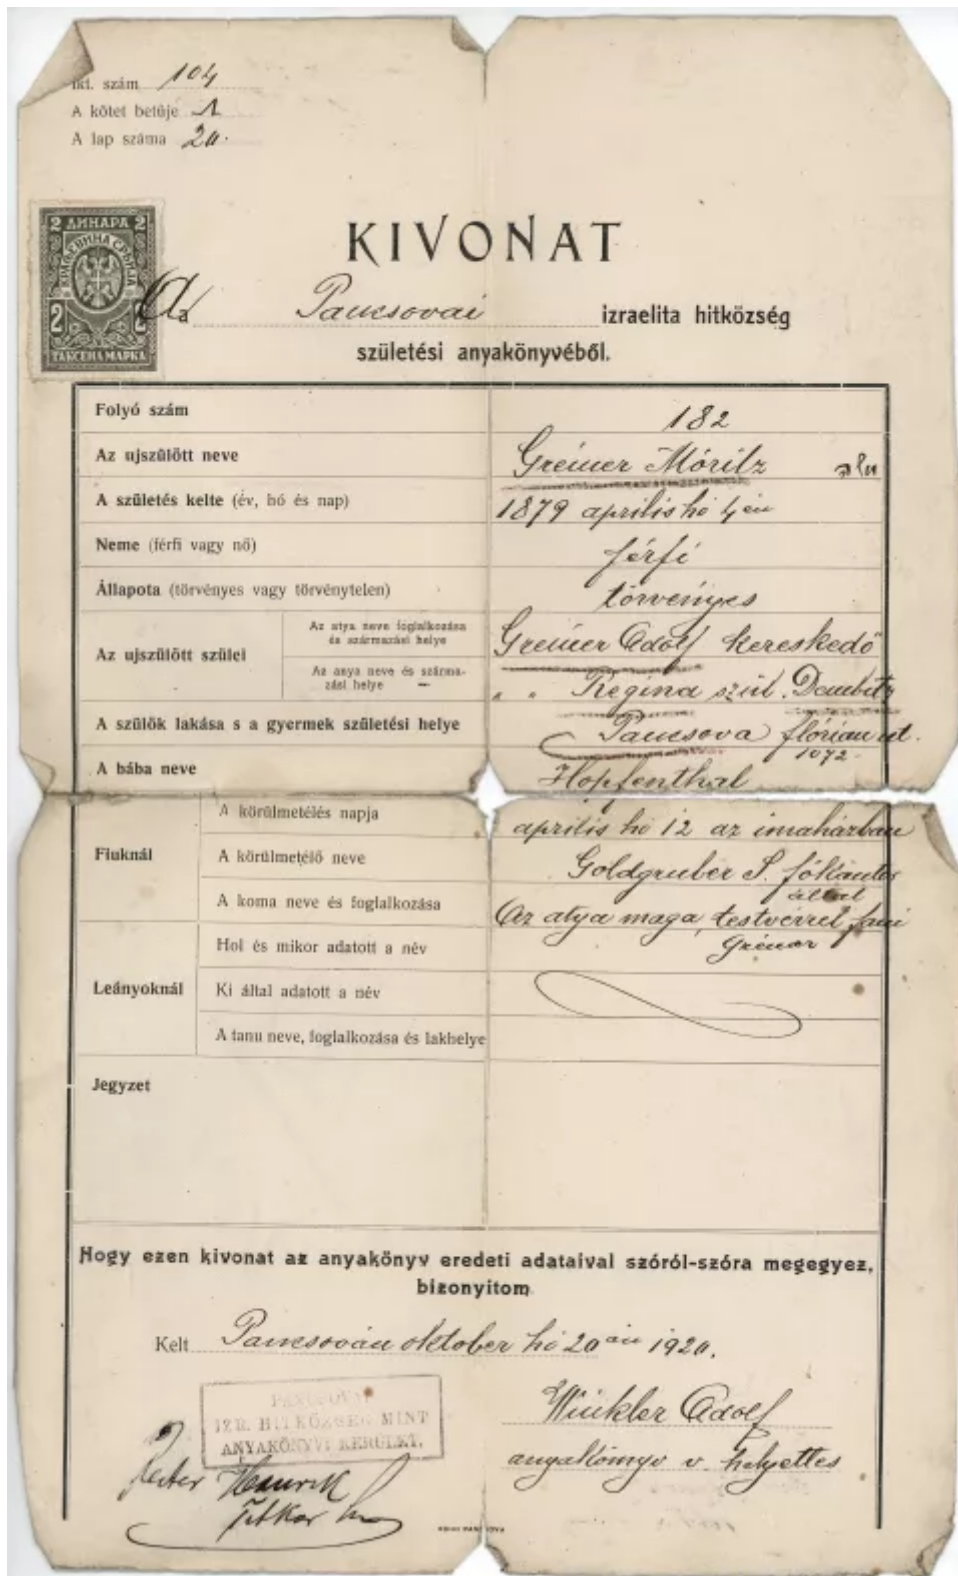 Ikt. szám 104
A kötet betüje 1
A lap száma 20.
2 ДИНАРА 2
КРАЉЕВИНА СРБИЈА
2 2
ТАКСЕНА МАРКА
KIVONAT
A Pancsovai izraelita hitközség
születési anyakönyvéből.
Folyó szám 182
Az ujszülött neve Greiner Móritz
A születés kelte (év, hó és nap) 1879 aprilis hó 4 én
Neme (férfi vagy nő) férfi
Állapota (törvényes vagy törvénytelen) törvényes
Az ujszülött szülei
Az atya neve foglalkozása és származási helye Greiner Adolf kereskedő
Az anya neve és szárma-
zási helye — " " Regina szül.
A szülök lakása s a gyermek születési helye Pancsova flórian ut.
1072.
A bába neve Hopfenthal
Fiuknál
A körülmetélés napja aprilis hó 12 az imaházban
A körülmetélő neve Goldgruber S. főkántor
által
A koma neve és foglalkozása Az atya maga, testvérrel
Greiner
Leányoknál
Hol és mikor adatott a név
Ki által adatott a név
A tanu neve, foglalkozása és lakhelye
Jegyzet
Hogy ezen kivonat az anyakönyv eredeti adataival szóról-szóra megegyez,
bizonyitom
Kelt Pancsován oktober hó 20 án 1920.
PANCSOVAI
IZR. HITKÖZSÉG MINT
ANYAKÖNYVI KERÜLET.
Winkler Adolf
anyakönyv v. helyettes
Henrik
Titkár